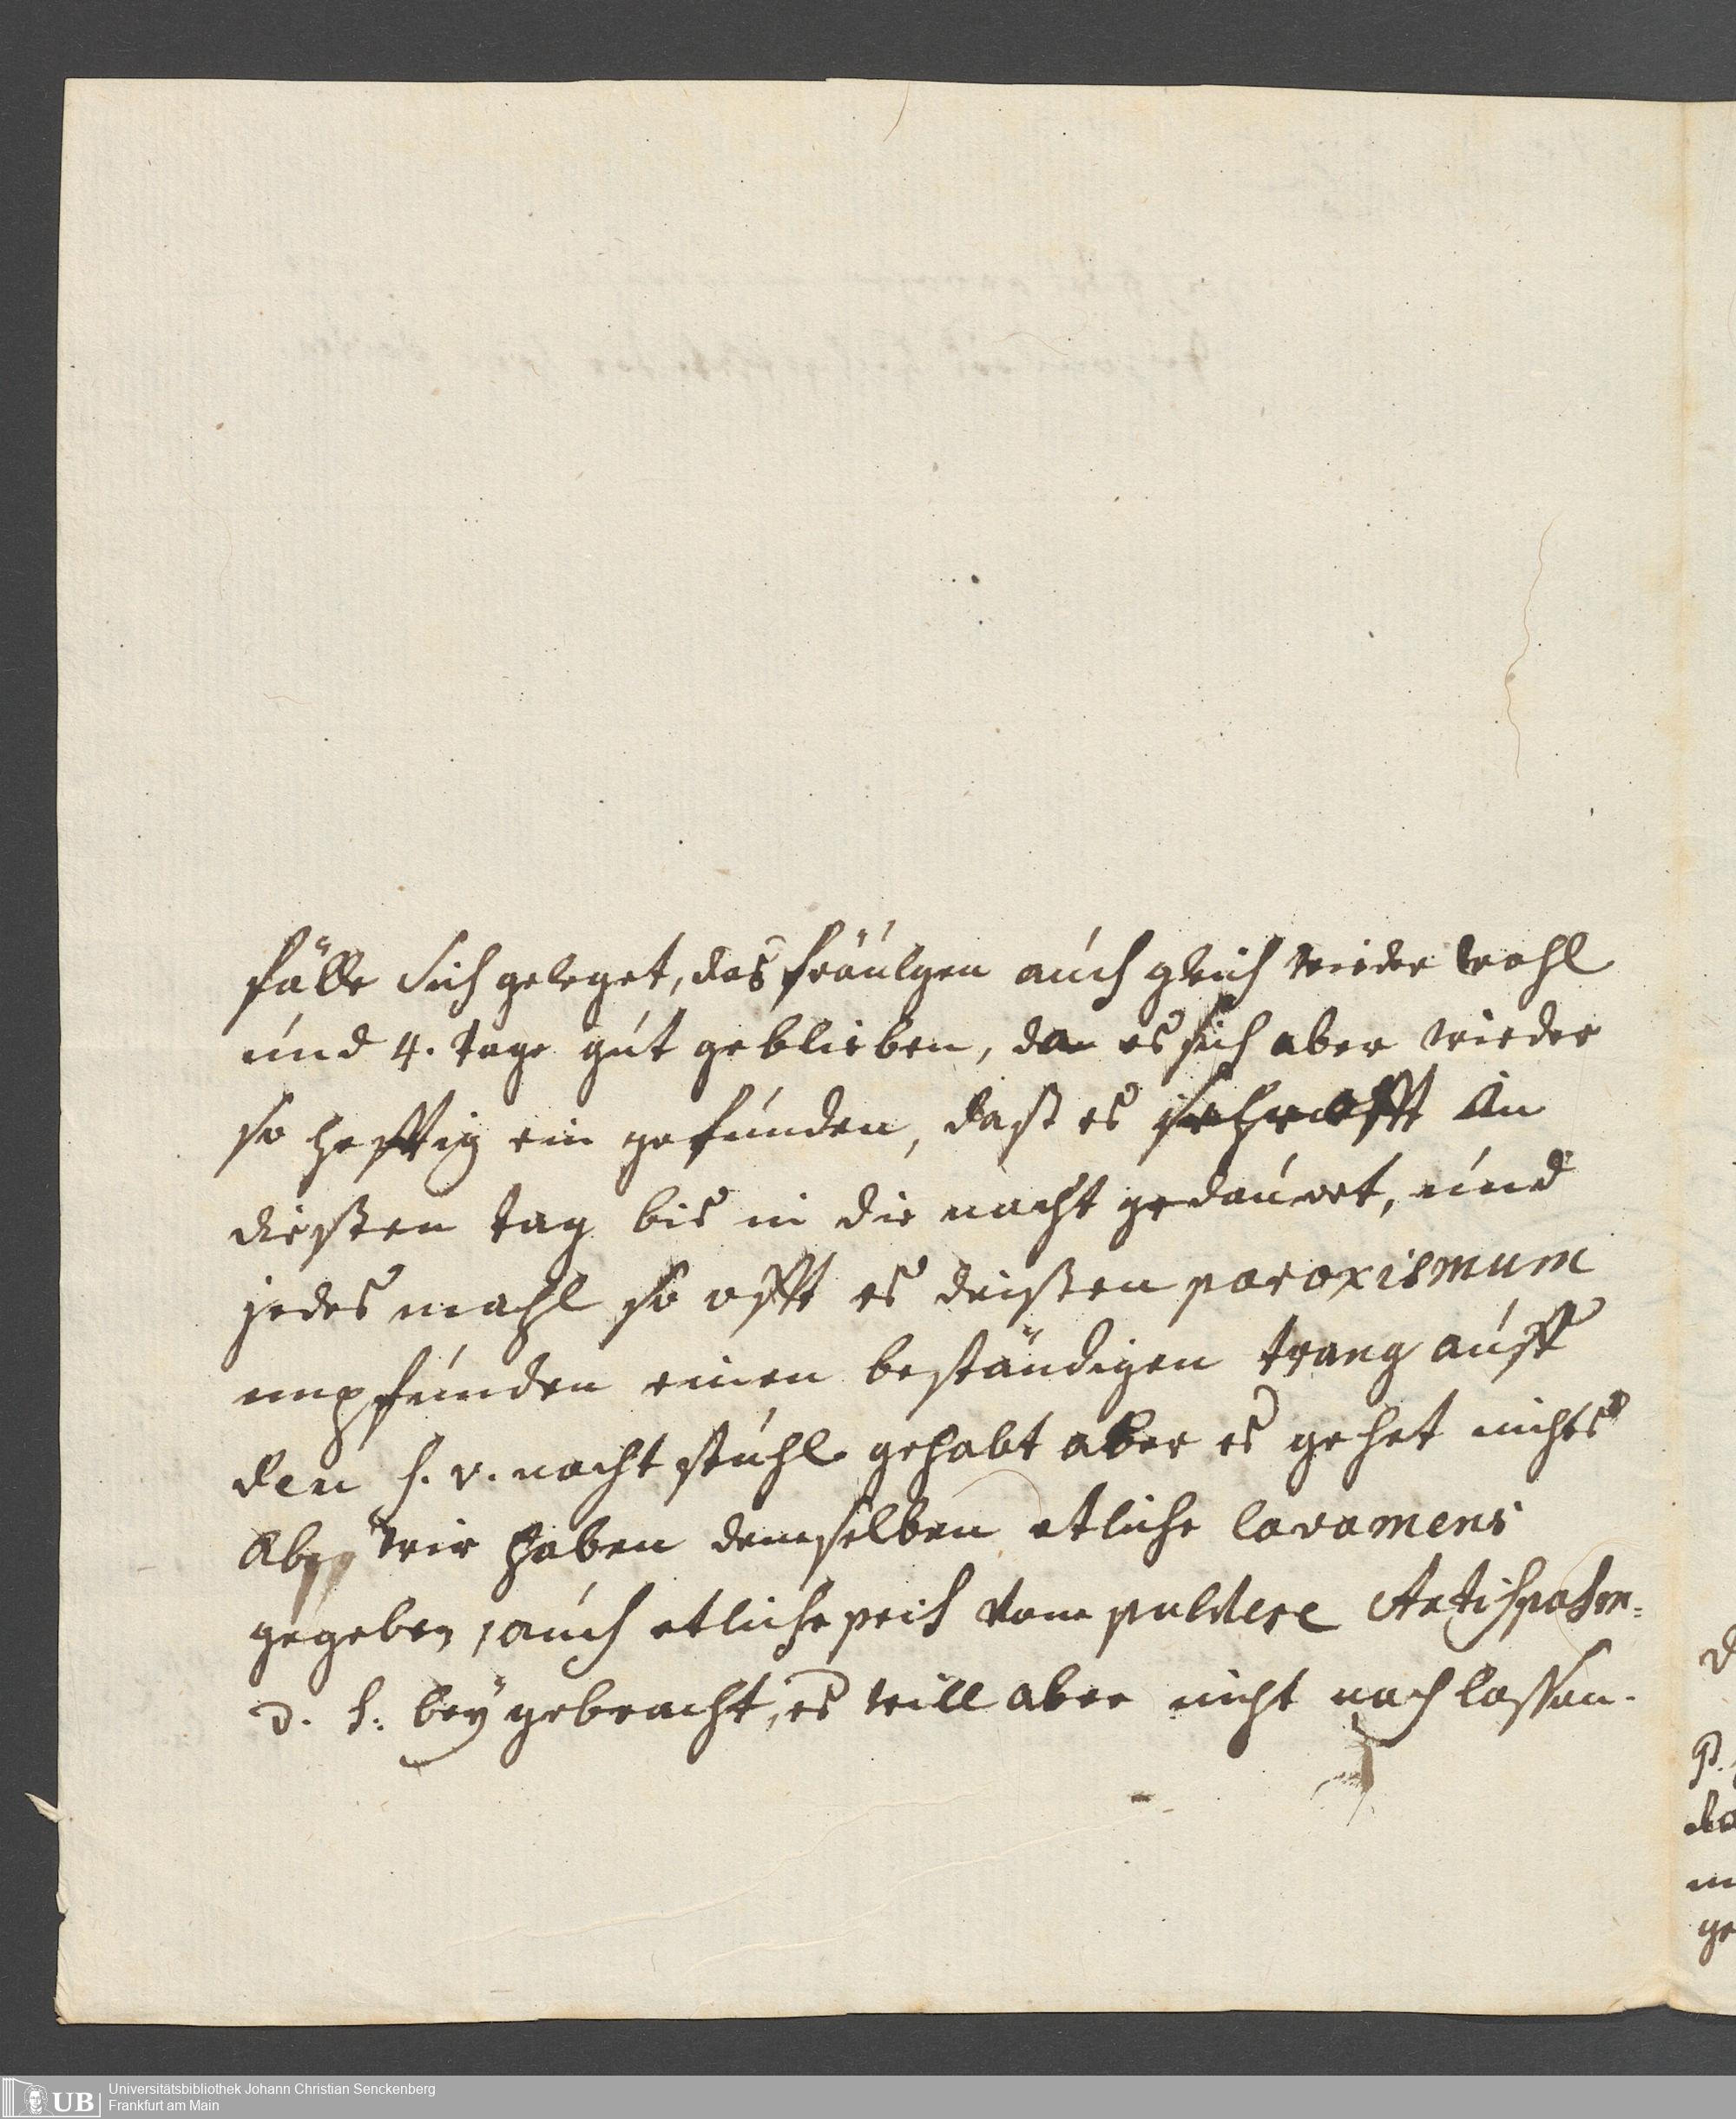 fälle sich geleget, das fräulgen auch gleich wieder wohl
und 4. tage gut geblieben, da es sich aber wieder
so hefftig ein gefunden, daß es sehr offt
dießen tag bis in die nacht gedauret, und
jedes mahl so offt es dießen paroxismum
empfunden einen beständigen trang auff
den s. v. nacht stuhl gehabt aber es gehet nichts
ab, wir haben demselben etliche lavamens
gegeben, auch etliche vom pulvere Antispasm=
d. h: bey gebracht, es will aber nicht nach lassen.
Universitätsbibliothek Johann Christian Senckenberg
Frankfurt am Main
UB